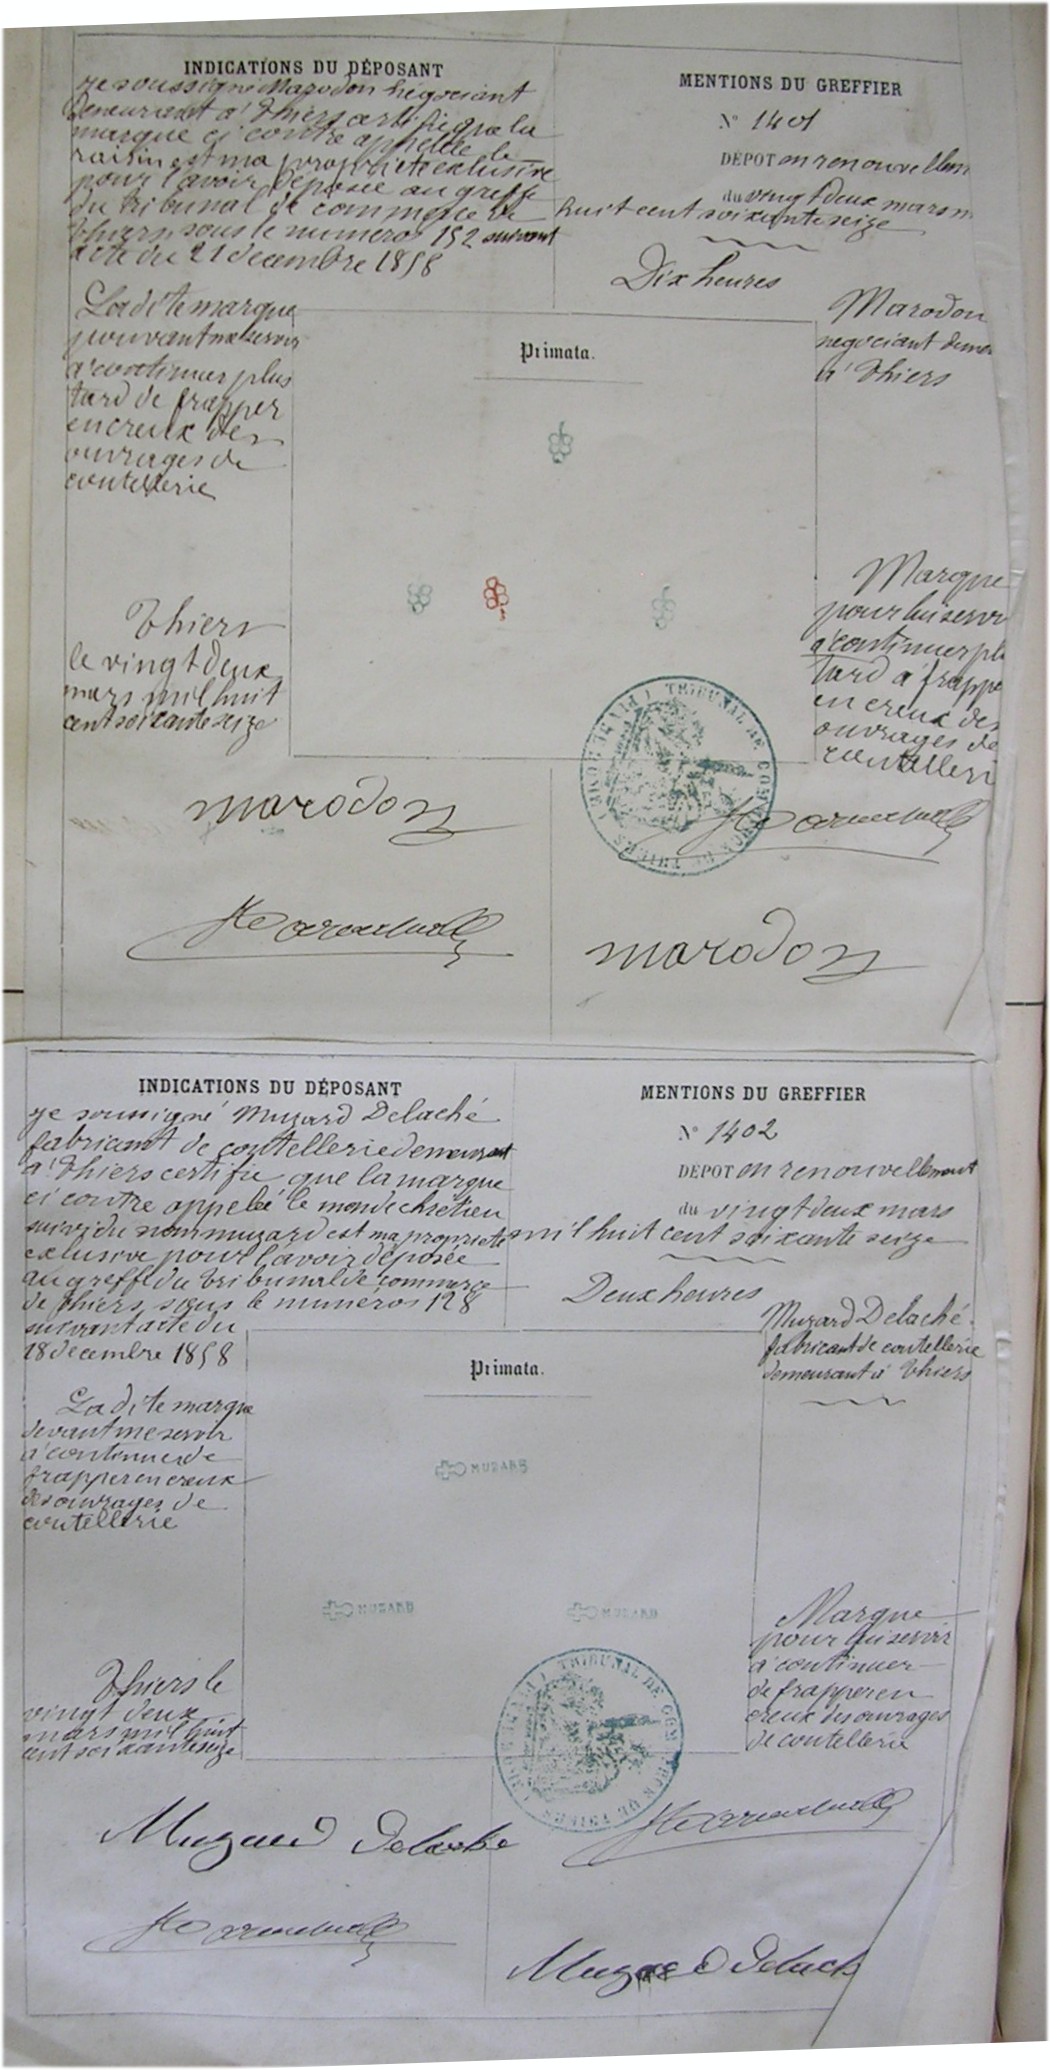 INDICATIONS DU DÉPOSANT
Je soussigné Marodon négociant
demeurant a' Thiers certifie que la
marque ci contre appellée le
raisin est ma propriété exlusive
pour l'avoir déposée au greffe
du tribunal de commerce de
Thiers sous le numeros 152 suivant
acte du 21 decembre 1858
La dite marque
pouvant me servir
a' continuer plus
tard de frapper
en creux des
ouvrages de
coutellerie
Thiers
le vingt deux
mars mil huit
cent soixante seize
MENTIONS DU GREFFIER
N° 1401
DÉPOT en renouvellem
du vingt deux mars m
huit cent soixante seize
Dix heures
Marodon
negociant deme
a' Thiers
Primata.
Marque
pour lui servir
a' continuer pl
tard a' frappe
en creux des
ouvrages de
coutelleri
TRIBUNAL DE COMMERCE DE THIERS
marodon
marodon
INDICATIONS DU DÉPOSANT
Je soussigné Muzard Delaché
fabricant de coutellerie demeurant
a' Thiers certifie que la marque
ci contre appelée le monde chretien
suivi du nom muzard est ma propriete
exclusive pour l'avoir déposée
au greffe du tribunal de commerce
de Thiers sous le numéros 128
suivant acte du
18 decembre 1858
La dite marque
devant me servir
a' continuer de
frapper en creux
des ouvrages de
coutellerie
Thiers le
vingt deux
mars mil huit
cent soixante seize
MENTIONS DU GREFFIER
N° 1402
DÉPOT en renouvellement
du vingt deux mars
mil huit cent soixante seize
Deux heures
Muzard Delaché
fabricant de coutellerie
demeurant a' Thiers
Primata.
MUZARD
MUZARD
MUZARD
Marque
pour lui servir
a' continuer
de frapper en
creux des ouvrages
de coutellerie
TRIBUNAL DE COMMERCE DE THIERS
Muzard Delaché
Muzard Delach